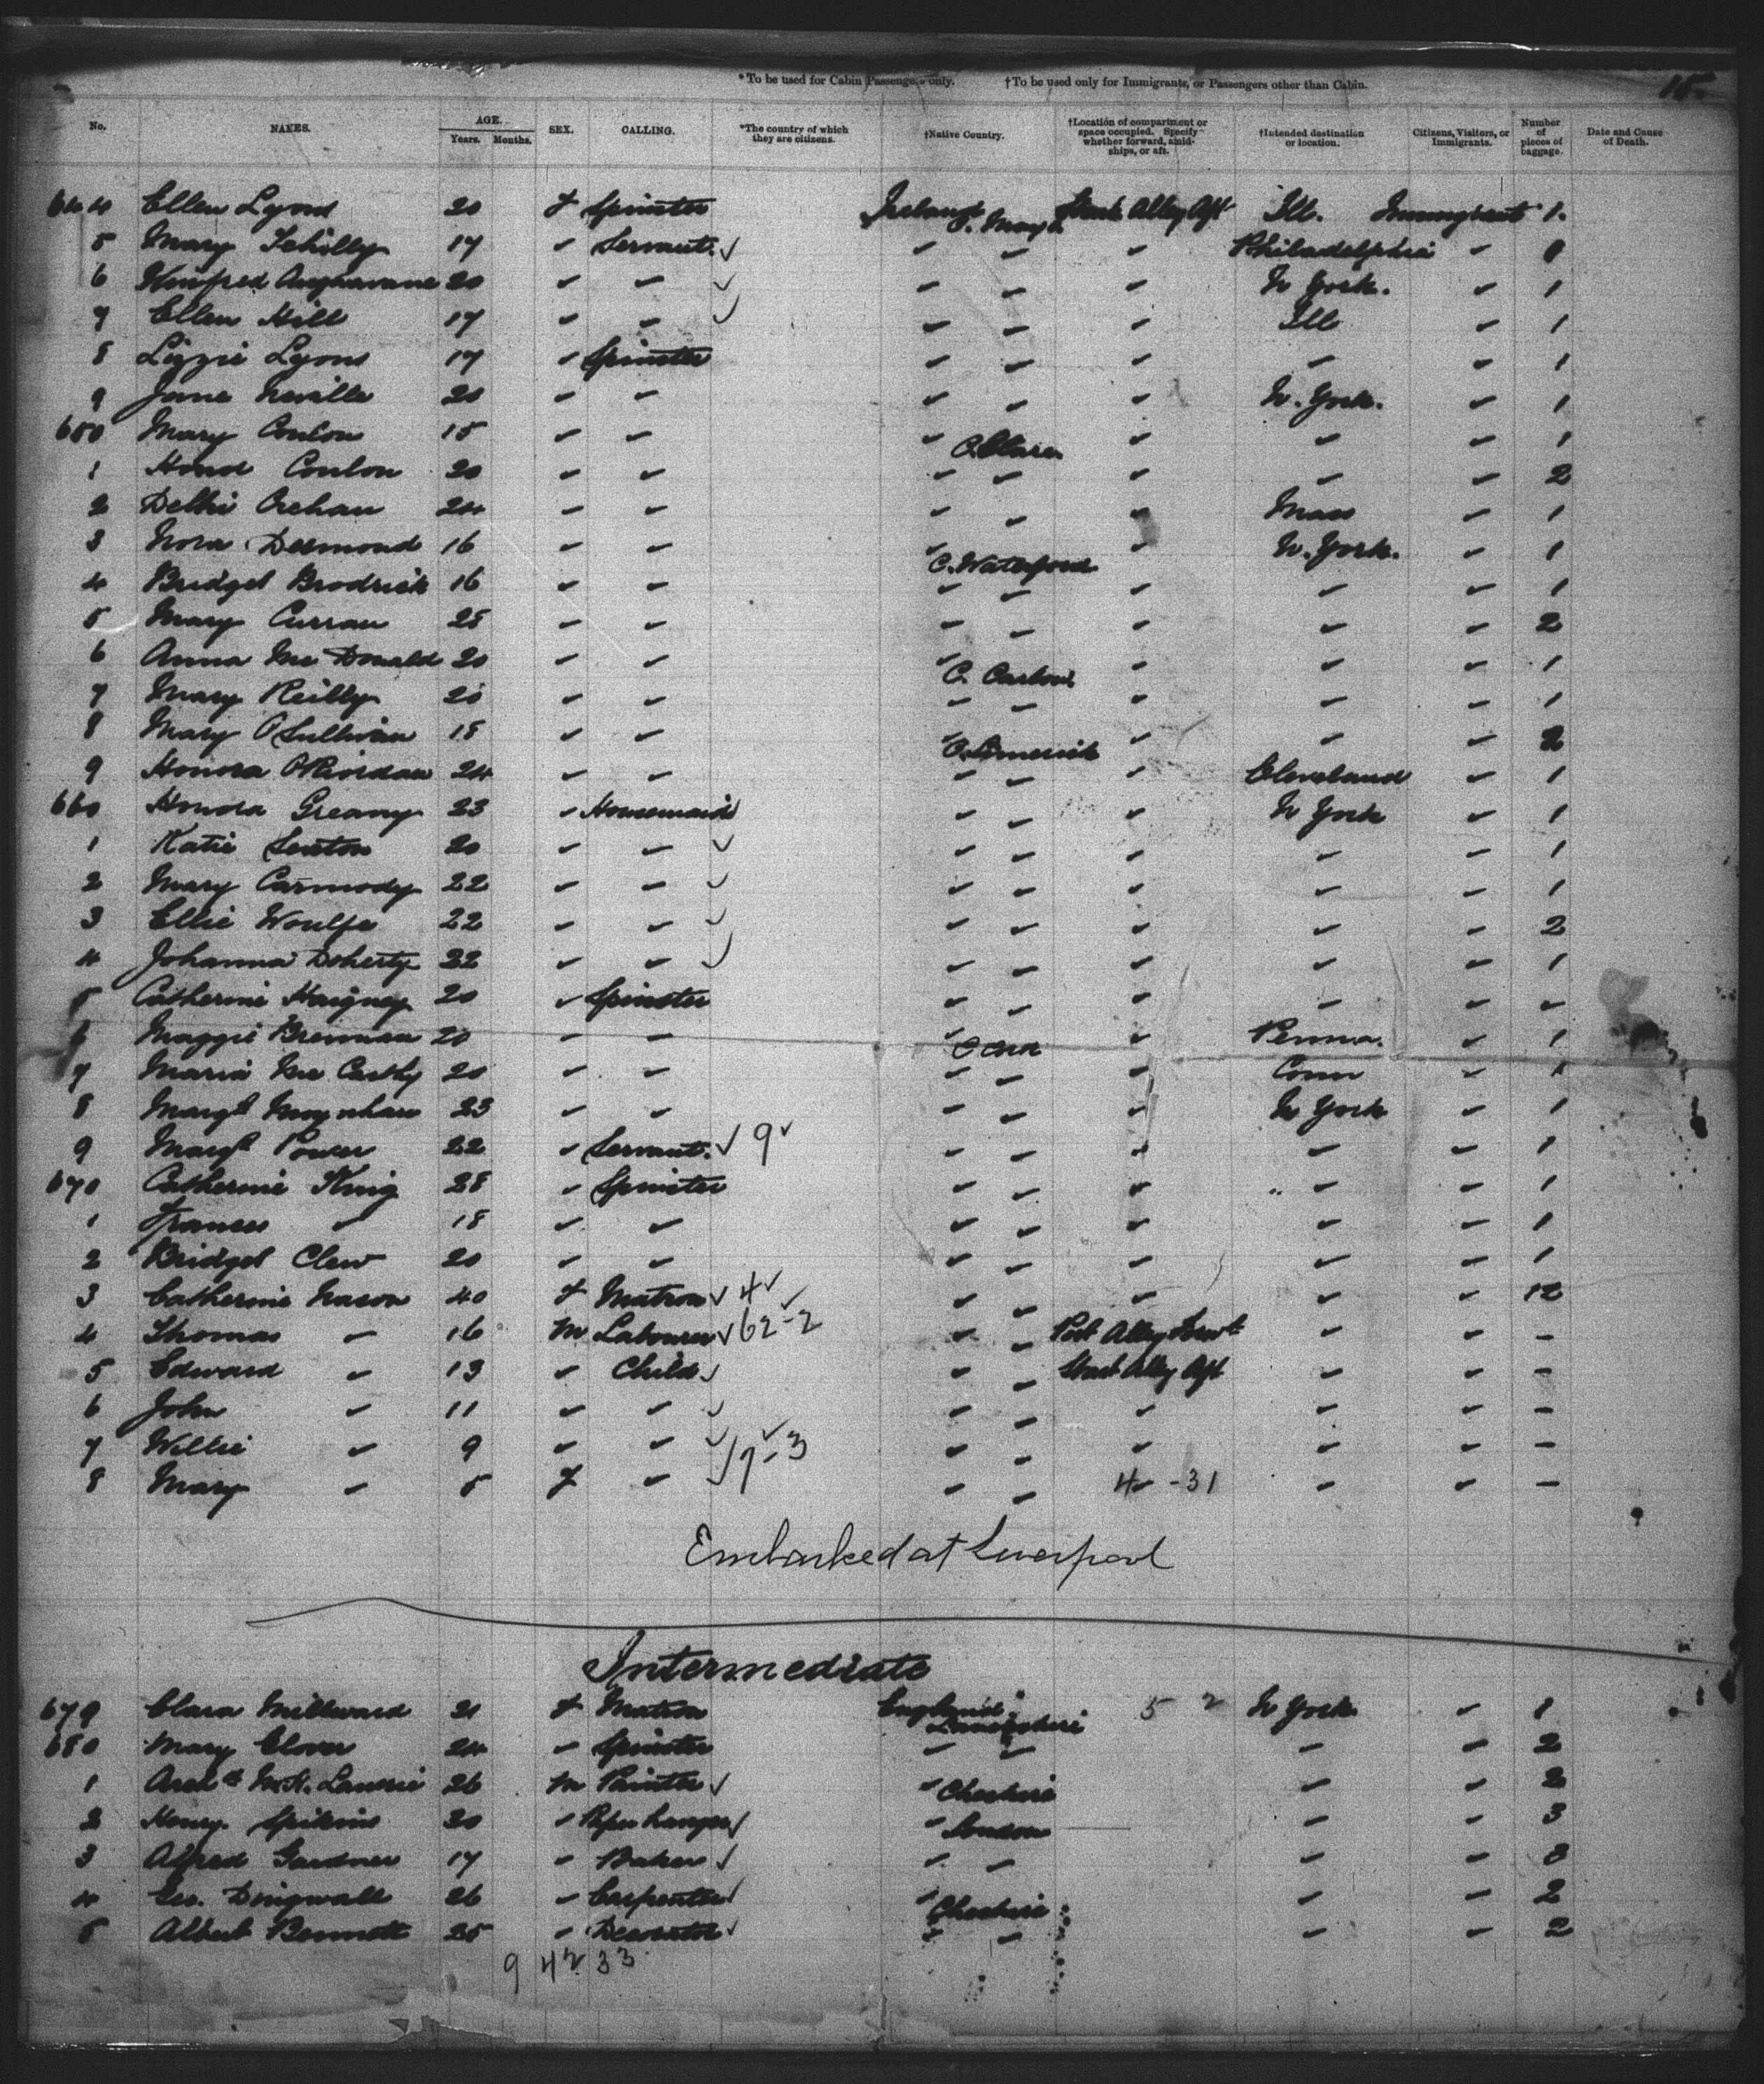 *To be used for Cabin Passengers only. †To be used only for Immigrants, or Passengers other than Cabin. 15.
No. NAMES. AGE. Years. Months. SEX. CALLING. *The country of which they are citizens. †Native Country. †Location of compartment or space occupied. Specify whether forward, amidships, or aft. †Intended destination or location. Citizens, Visitors, or Immigrants. Number of pieces of baggage. Date and Cause of Death.
644 Ellen Lyons 20 F Spinster Ireland C. Mayo Starb Alley Aft Ill. Immigrant 1.
5 Mary 17 " Servant. ✓ " " " Philadelphia " 1
6 20 " " ✓ " " " N York. " 1
7 Ellen Hill 17 " " ✓ " " " Ill " 1
8 Lizzie Lyons 17 " Spinster " " " " " 1
9 Jane Neville 20 " " " " " N. York. " 1
650 Mary Conlon 15 " " " C. Clare " " " 1
1 Conlon 20 " " " " " " " 2
2 24 " " " " " Mass " 1
3 Nora Desmond 16 " " " C. Waterford " N. York. " 1
4 Bridget Brodrick 16 " " " " " " " 1
5 Mary Curran 25 " " " " " " " 2
6 Anna Mc Donald 20 " " " C. Carlow " " " 1
7 Mary Reilly 20 " " " " " " " 1
8 Mary O'Sullivan 18 " " " C. Limerick " " " 2
9 Honora O'Riordan 24 " " " " " Cleveland " 1
660 Honora Greany 23 " Housemaid " " " N York " 1
1 Katie Sexton 20 " " ✓ " " " " " 1
2 Mary Carmody 22 " " ✓ " " " " " 1
3 Ellie Woulfe 22 " " ✓ " " " " " 2
4 Johanna Doherty 22 " " ✓ " " " " " 1
5 Catherine 20 " Spinster " " " " " "
6 Maggie Brennan 20 " " " " Penna. " 1
7 Maria Mc Carthy 20 " " " " " Conn " 1
8 Margt Moynihan 23 " " " " " N York " 1
9 Margt Power 22 " Servant. ✓ 9 ✓ " " " " " 1
670 Catherine King 28 " Spinster " " " " " 1
1 Frances " 18 " " " " " " " 1
2 Bridget Clew 20 " " " " " " " 1
3 Catherine Nason 40 F Matron ✓ 4 ✓ " " " " " 12
4 Thomas " 16 M Labourer ✓ 62-2 " " Port Alley Forwt " " –
5 Edward " 13 " Child ✓ " " Starb Alley Aft " " –
6 John " 11 " " ✓ " " " " " –
7 Willie " 9 " " ✓ " " " " " –
8 Mary " 5 F " ✓ 17-3 " " 4 -31 " " –
Embarked at Liverpool
Intermediate
679 Clara Millward 21 F Matron England Lancashire 5 2 N York " 1
680 Mary Clover 24 " Spinster " " " " 2
1 26 M Painter ✓ " Cheshire " " 2
2 Henry 20 " Paper hanger ✓ " London " " 3
3 Alfred Gardner 17 " Baker ✓ " " " " 3
4 Geo. Dingwall 26 " Carpenter ✓ " Cheshire " " 2
5 Albert Bennett 25 " Decorator ✓ " " " " 2
9 42 33